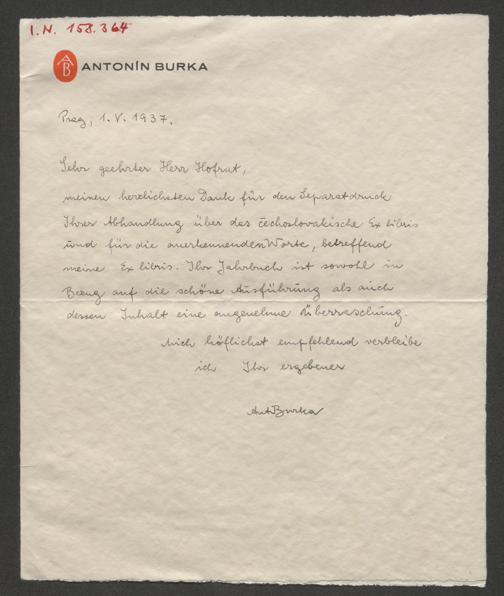 I.N. 158.364
AB ANTONÍN BURKA
Prag, 1. V. 1937.
Sehr geehrter Herr Hofrat,
meinen herzlichsten Dank für den Separatdruck
Ihrer Abhandlung über das čechoslovakische Ex libris
und für die anerkennenden Worte, betreffend
meine Ex libris. Ihr Jahrbuch ist sowohl in
Bezug auf die schöne Ausführung als auch
dessen Inhalt eine angenehme Überraschung.
Mich höflichst empfehlend verbleibe
ich Ihr ergebener
AntBurka